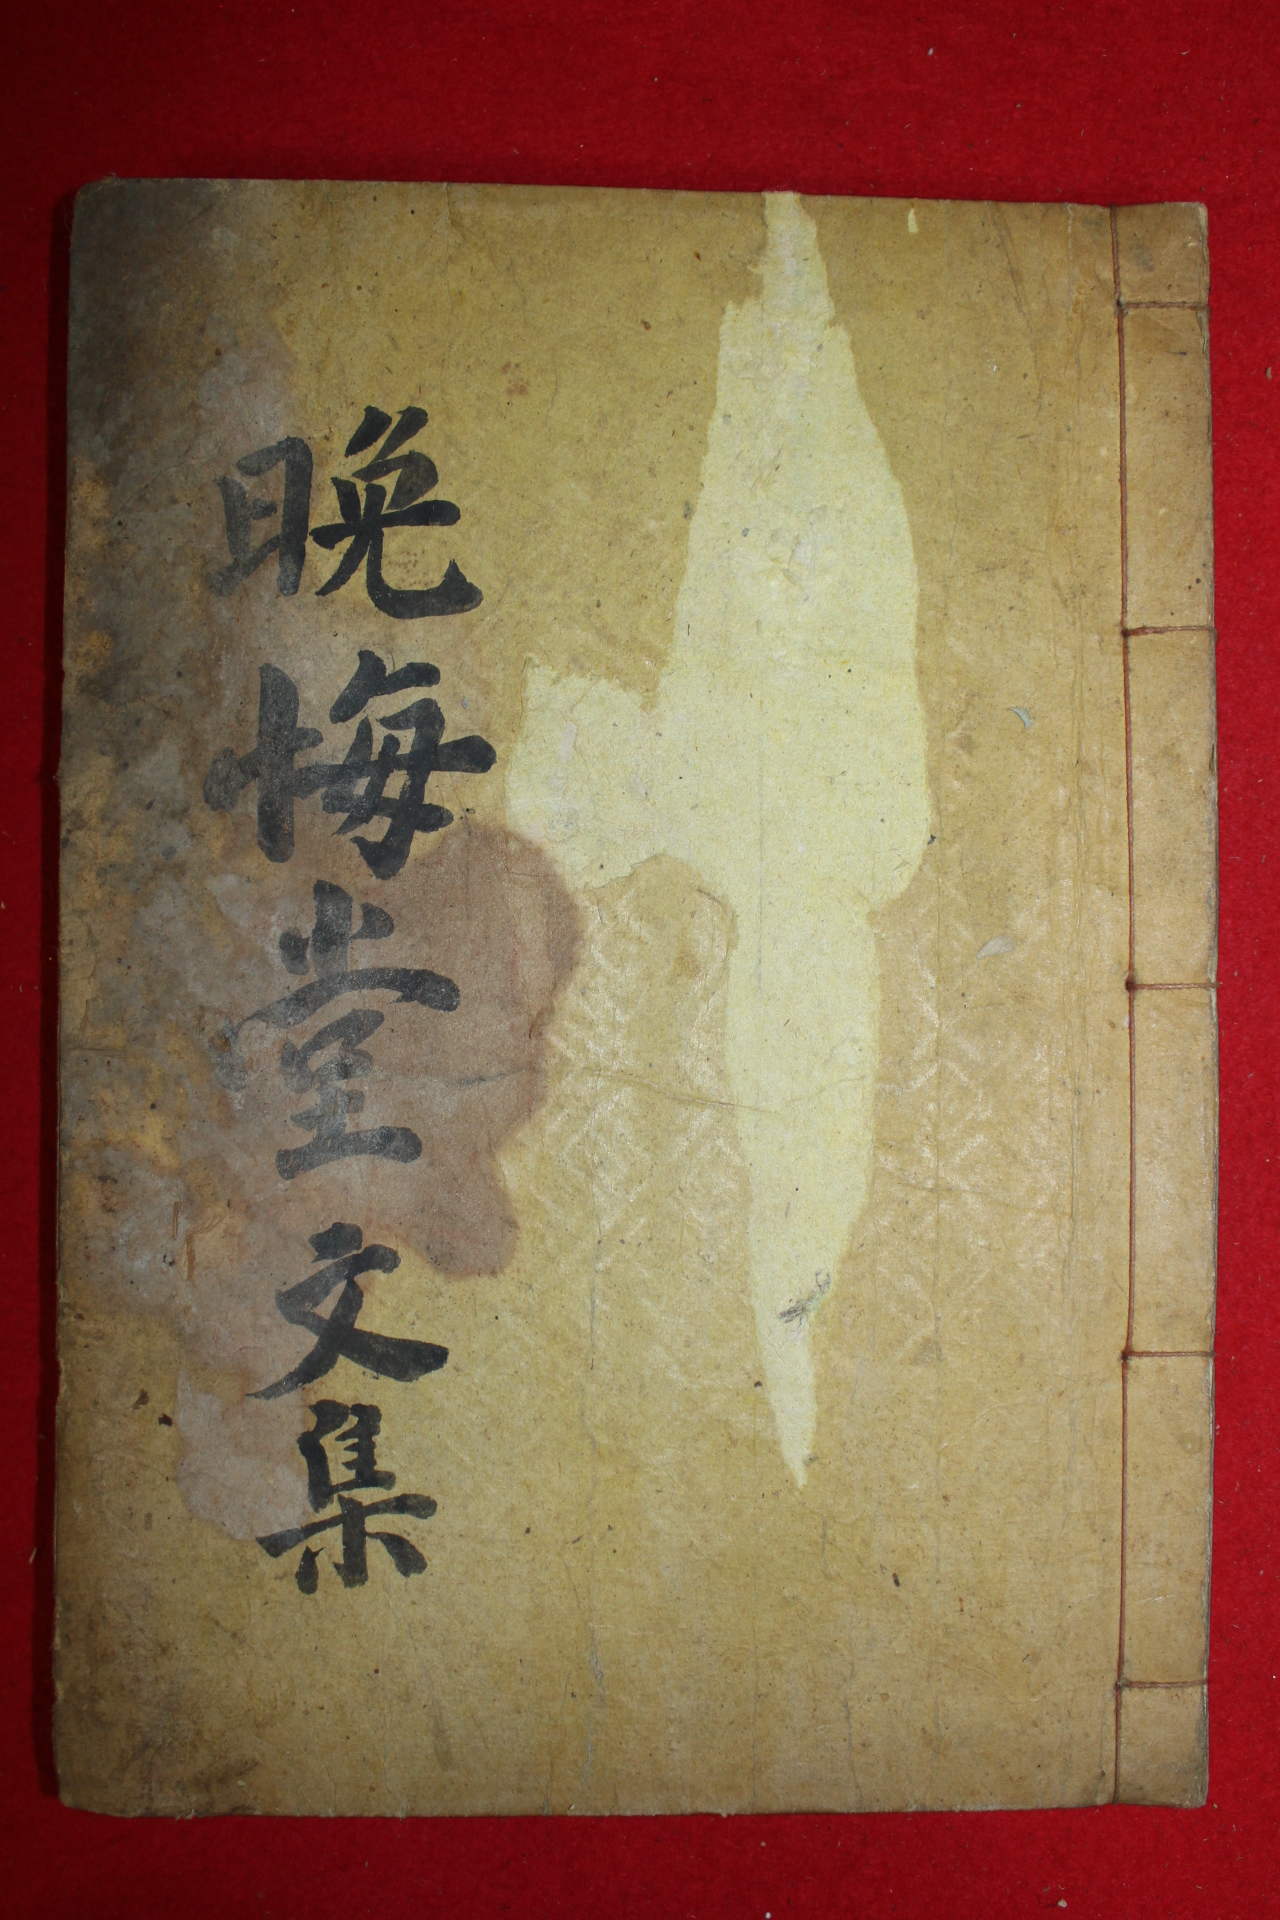 晩悔堂文集